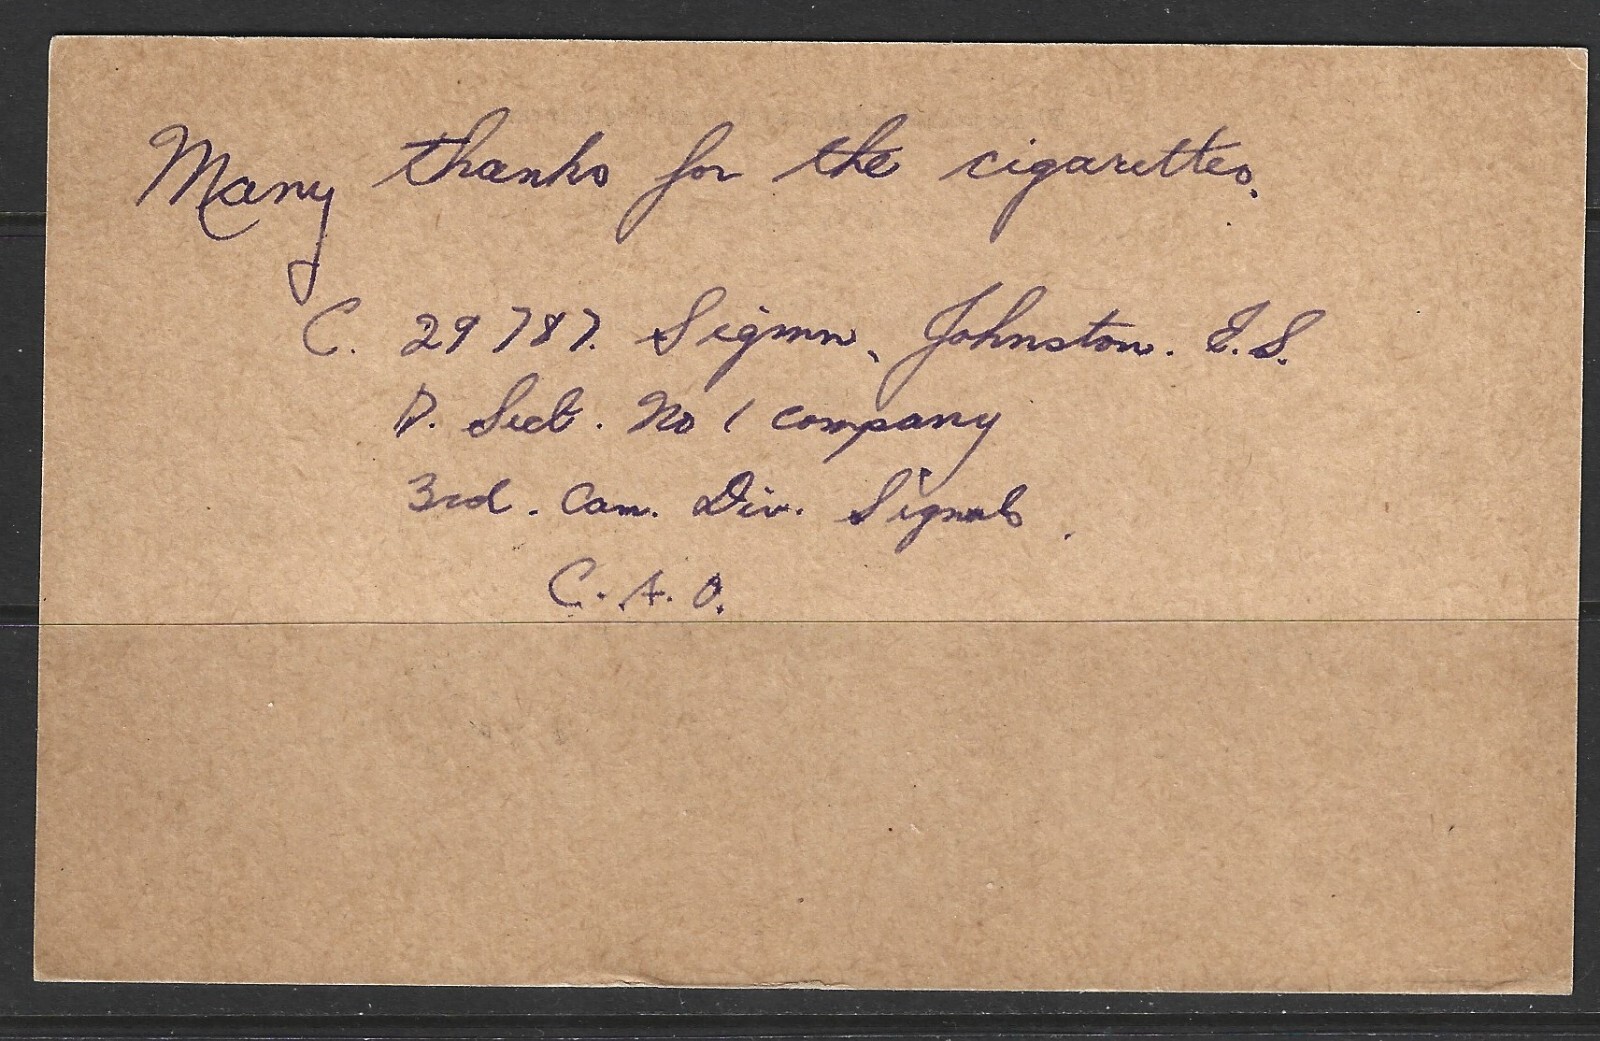 Many thanks for the cigarettes.
C. 29787. Sigmn. Johnston. E.S.
D. Sect. No 1 company
3rd. Can. Div. Signals.
C.A.O.